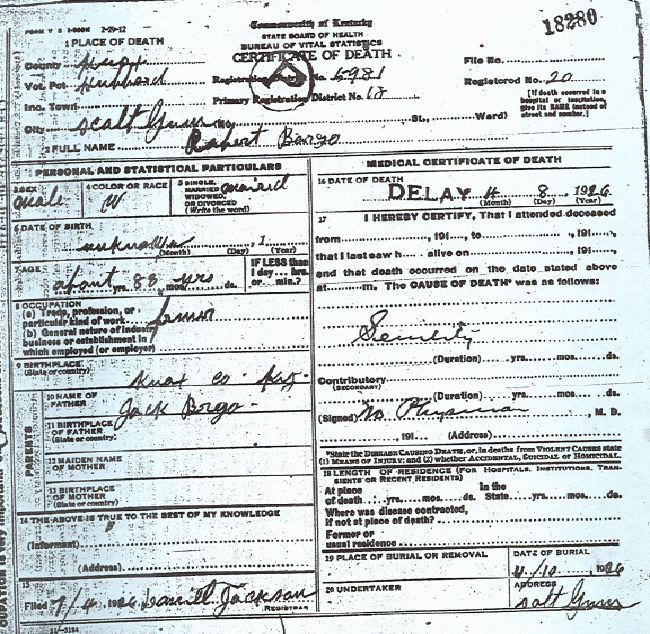 Commonwealth of Kentucky
18280
FORM V S 1-500M 2-29-12
STATE BOARD OF HEALTH
BUREAU OF VITAL STATISTICS
CERTIFICATE OF DEATH
1 PLACE OF DEATH
County Knox
File No.
Vot. Pct Hubbard
Registration No. 5981
Registered No. 20
Inc. Town
Primary Registration District No. 18
[If death occurred in a hospital or institution, give its NAME instead of street and number.]
City Scalf (No. St., Ward)
2 FULL NAME Robert Bargo
PERSONAL AND STATISTICAL PARTICULARS
3 SEX male
4 COLOR OR RACE W
5 SINGLE, MARRIED, WIDOWED, OR DIVORCED (Write the word)
6 DATE OF BIRTH
unknown, 1
(Month) (Day) (Year)
7 AGE
about yrs. 88 mos. yrs ds.
IF LESS than 1 day... hrs. or... min.?
8 OCCUPATION
(a) Trade, profession, or particular kind of work
(b) General nature of industry business or establishment in which employed (or employer)
9 BIRTHPLACE
(State or country)
Knox Co Ky
PARENTS
10 NAME OF FATHER
Jack Brgo
11 BIRTHPLACE OF FATHER
(State or country)
12 MAIDEN NAME OF MOTHER
13 BIRTHPLACE OF MOTHER
(State or country)
14 THE ABOVE IS TRUE TO THE BEST OF MY KNOWLEDGE
(Informant)
(Address)
15
Filed 7/4 1926 Jackson
REGISTRAR
11-3184
MEDICAL CERTIFICATE OF DEATH
16 DATE OF DEATH
DELAY 4 8 1926
(Month) (Day) (Year)
17 I HEREBY CERTIFY, That I attended deceased
from, 191, to, 191,
that I last saw h alive on, 191,
and that death occurred on the date stated above
at m. The CAUSE OF DEATH* was as follows:
Senility
(Duration) yrs. mos. ds.
Contributory
(SECONDARY)
(Duration) yrs. mos. ds.
(Signed) No Physician, M. D.
, 191 (Address)
*State the DISEASE CAUSING DEATH, or, in deaths from VIOLENT CAUSES state (1) MEANS OF INJURY; and (2) whether ACCIDENTAL, SUICIDAL or HOMICIDAL.
18 LENGTH OF RESIDENCE (FOR HOSPITALS, INSTITUTIONS, TRANSIENTS OR RECENT RESIDENTS)
At place of death yrs. mos. ds. In the State yrs. mos. ds.
Where was disease contracted, if not at place of death?
Former or usual residence
19 PLACE OF BURIAL OR REMOVAL
DATE OF BURIAL
4/10, 1926
20 UNDERTAKER
ADDRESS